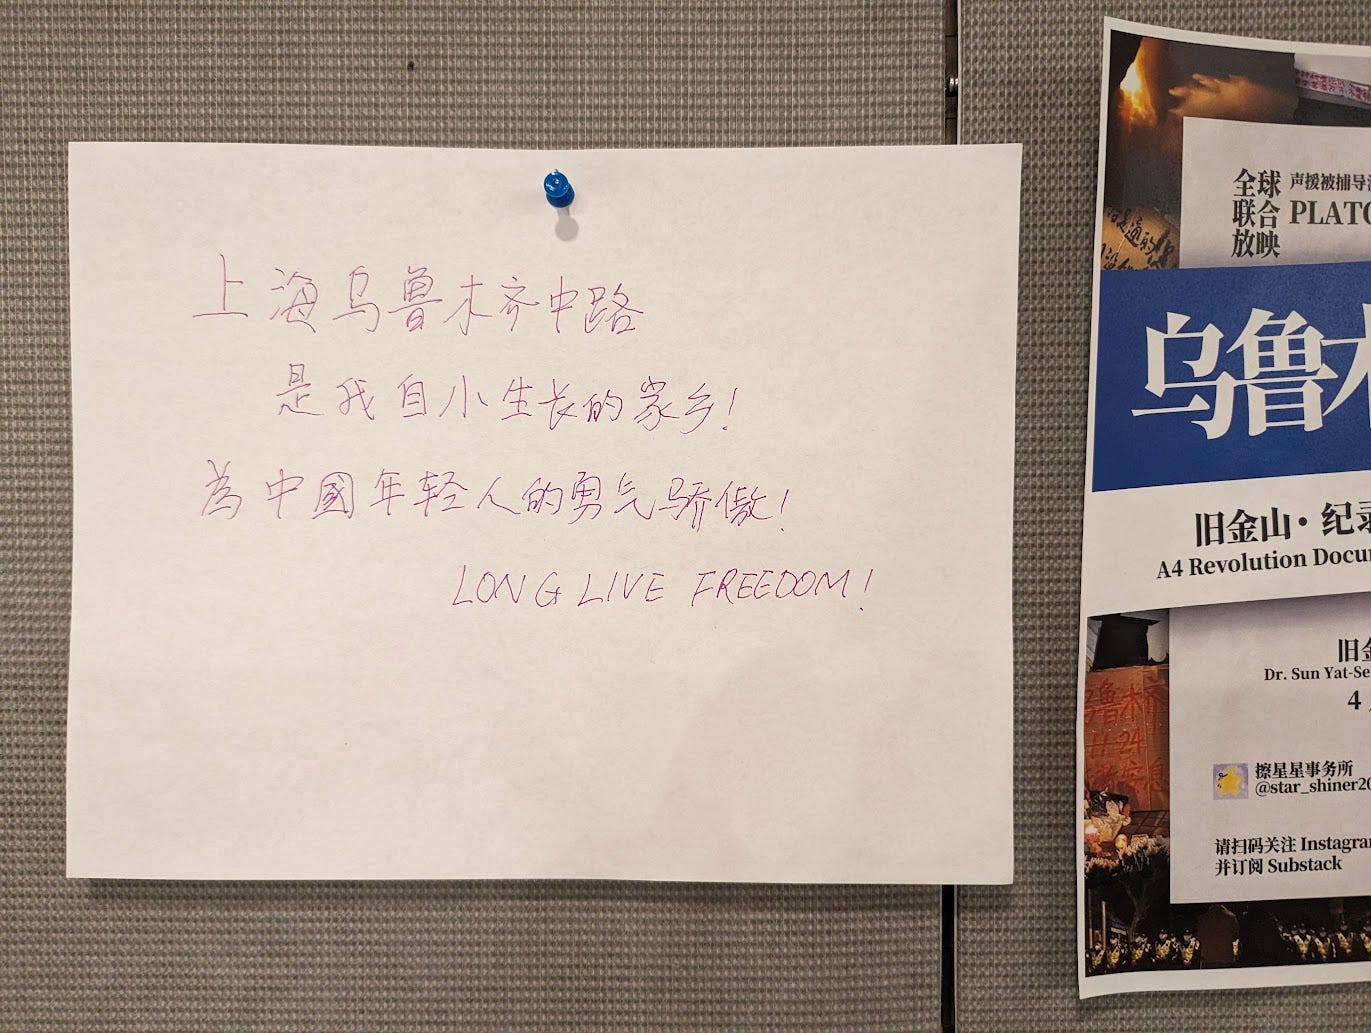 上海乌鲁木齐中路
是我自小生长的家乡！
為中國年轻人的勇气骄傲！
LONG LIVE FREEDOM!
全球
联合
放映
声援被捕导
PLATO
乌鲁木
旧金山·纪录
A4 Revolution Docu
旧金
Dr. Sun Yat-Se
4
鲁木齐
11.24
擦星星事务所
@star_shiner20
请扫码关注 Instagra
并订阅 Substack